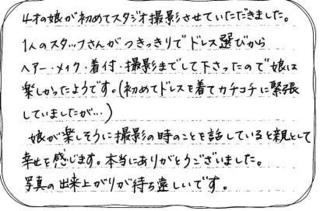 4才の娘が初めてスタジオ撮影させていただきました。
1人のスタッフさんがつきっきりでドレス選びから
ヘアー・メイク・着付・撮影までして下さったので娘は
楽しかったようです。(初めてドレスを着てカチコチに緊張
していましたが…)
娘が楽しそうに撮影の時のことを話していると親として
幸せを感じます。本当にありがとうございました。
写真の出来上がりが待ち遠しいです。